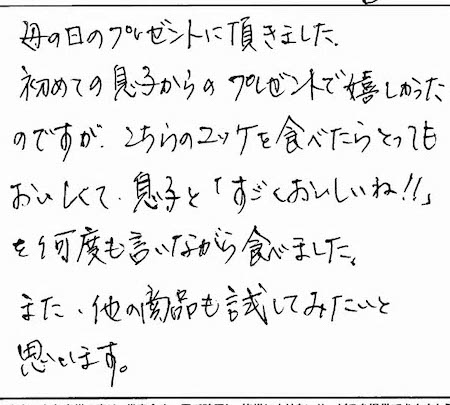 母の日のプレゼントに頂きました。
初めての息子からのプレゼントで嬉しかった
のですが、こちらのユッケを食べたらとっても
おいしくて、息子と「すごくおいしいね!!」
を何度も言いながら食べました。
また、他の商品も試してみたいと
思います。